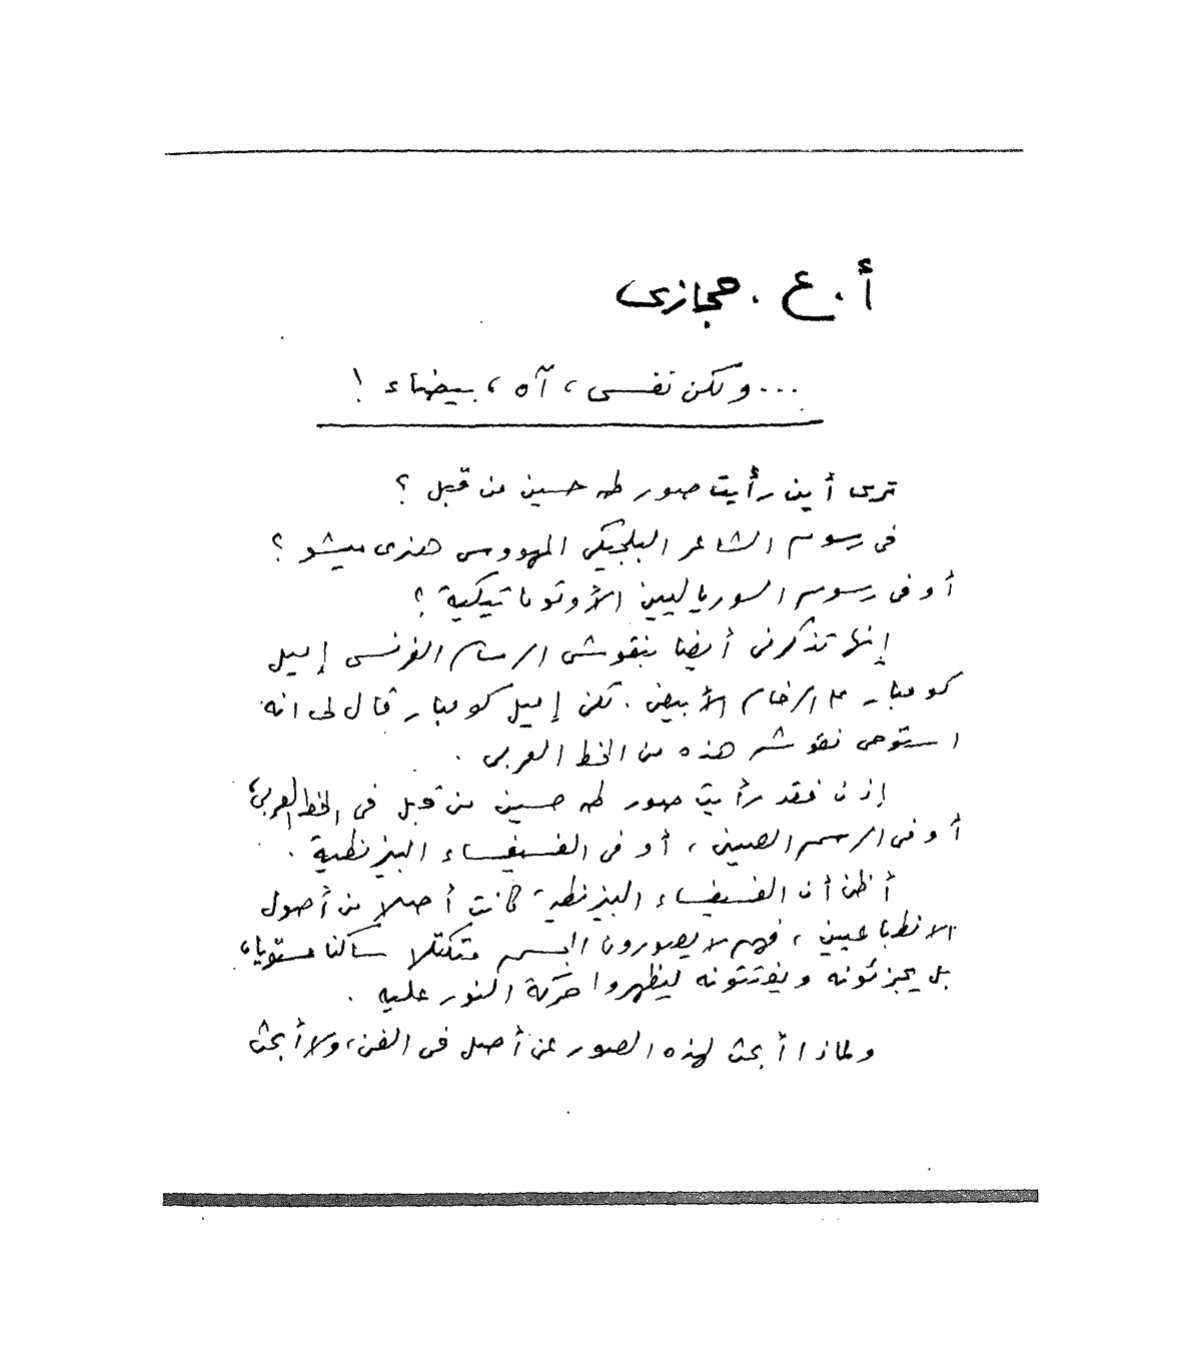 أ . ع . حجازى
... ولكن نفسى ، آه ، بيضاء !
ترى أين رأيت صور طه حسين من قبل ؟
فى رسوم الشاعر البلجيكى المهووس هنرى ميشو ؟
أو فى رسوم السورياليين الأوتوماتيكية ؟
إنها تذكرنى أيضا بنقوش الرسام الفرنسى إميل
كومبار على الرخام الأبيض . لكن إميل كومبار قال لى انه
استوحى نقوشه هذه من الخط العربى .
إذن فقد رأيت صور طه حسين من قبل فى الخط العربى ،
أو فى الرسم الصينى ، أو فى الفسيفساء البيزنطية .
أظن أن الفسيفساء البيزنطية كانت أصلا من أصول
الانطباعيين ، فهم لا يصورون الجسم متكتلا ساكنا مستويا ،
بل يجزئونه ويفتتونه ليظهروا حركة النور عليه .
ولماذا أبحث لهذه الصور عن أصل فى الفن ، ولا أبحث